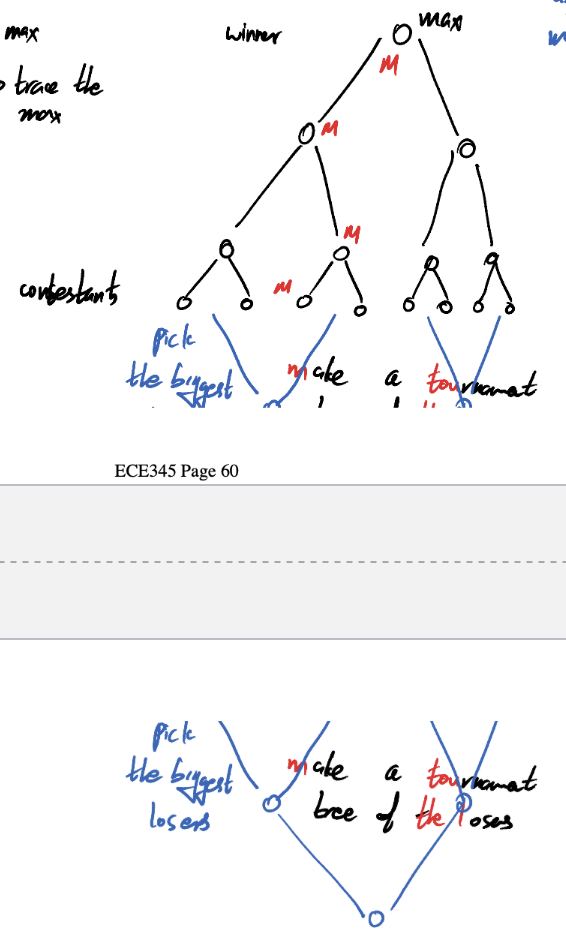 max
winner
max
to trace the
max
M
M
M
M
contestants
pick
the biggest
make a tournamat
ECE345 Page 60
pick
the biggest
losers
make a tournamat
tree of the loses